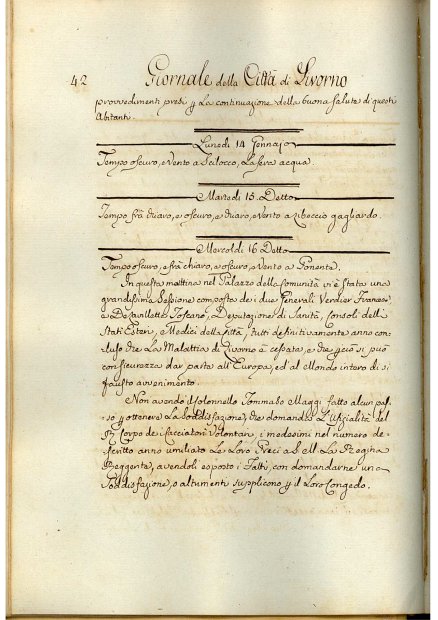 42 Giornale della Città di Livorno
provvedimenti presi p la continuazione della buona salute di questi
Abitanti.
Lunedì 14 Gennajo
Tempo oscuro, e Vento a Scilocco, La sera acqua.
Martedì 15 Detto
Tempo frà chiaro, e oscuro, e chiaro, e Vento a Libeccio gagliardo.
Mercoldì 16 Detto
Tempo oscuro, e frà chiaro, e oscuro, e Vento a Ponente.
In questa mattina nel Palazzo della Comunità vi è stata una
grandissima Sessione composta dei due Generali Verdier Francese
e De Lavillette Toscano, Deputazione di Sanità, Consoli delli
Stati Esteri, e Medici della Città, tutti definitivamente anno con=
cluso che La Malattia di Livorno è cessata, e che p ciò si può
con sicurezza dar parte all'Europa, ed al Mondo intero di si
fausto avvenimento.
Non avendo il Colonnello Tommaso Maggi fatto alcun pas=
so p ottenere La Soddisfazione, che domandò L'Ufizialità del
Corpo de Cacciatori Volontari, i medesimi nel numero de=
scritto anno umiliato Le Loro Preci a S. M. La Regina
Reggente, avendoli esposto i Fatti, con domandarne una
Soddisfazione, o altrimenti supplicono p il Loro Congedo.